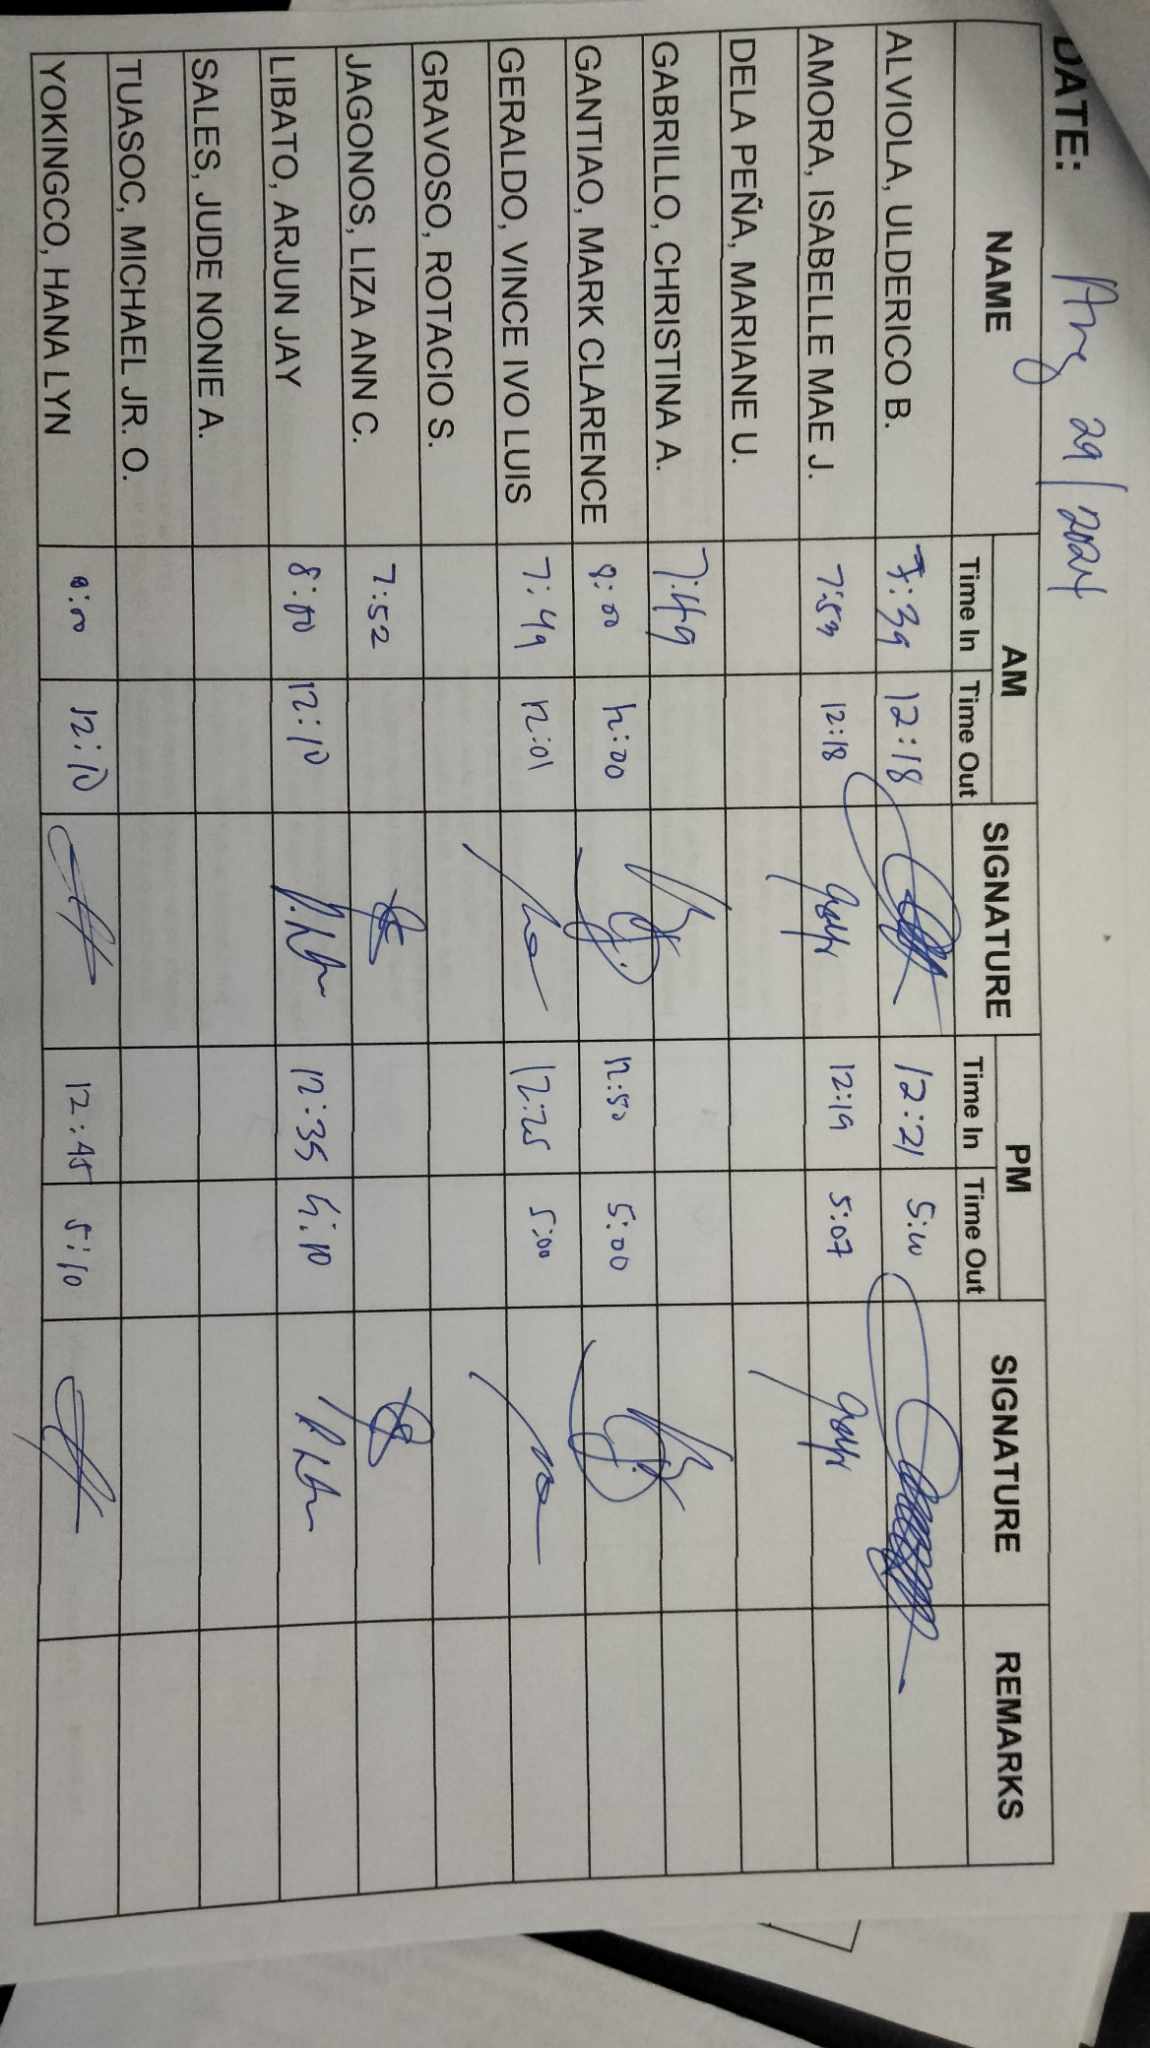 DATE: Aug 29/2024
NAME AM SIGNATURE PM SIGNATURE REMARKS
Time In Time Out Time In Time Out
ALVIOLA, ULDERICO B. 7:39 12:18 12:21
AMORA, ISABELLE MAE J. 7:53 12:18 12:19 5:07
DELA PEÑA, MARIANE U.
GABRILLO, CHRISTINA A. 7:49
GANTIAO, MARK CLARENCE 8:00 12:00 12:50 5:00
GERALDO, VINCE IVO LUIS 7:49 12:01 12:25 5:00
GRAVOSO, ROTACIO S.
JAGONOS, LIZA ANN C. 7:52
LIBATO, ARJUN JAY 8:00 12:10 12:35 5:10
SALES, JUDE NONIE A.
TUASOC, MICHAEL JR. O.
YOKINGCO, HANA LYN 8:00 12:10 12:45 5:10